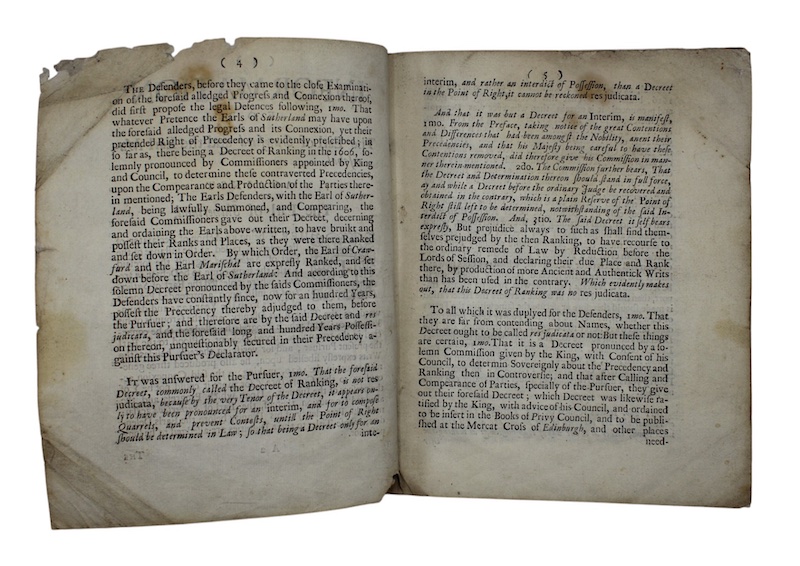 ( 4 )
THE Defenders, before they came to the close Examinati-
on of the foresaid alledged Progress and Connexion thereof,
did first propose the legal Defences following, 1mo. That
whatever Pretence the Earls of Sutherland may have upon
the foresaid alledged Progress and its Connexion, yet their
pretended Right of Precedency is evidently prescribed; in
so far as, there being a Decreet of Ranking in the 1606, so-
lemnly pronounced by Commissioners appointed by King
and Council, to determine these contraverted Precedencies,
upon the Compearance and Production of the Parties there-
in mentioned; The Earls Defenders, with the Earl of Suther-
land, being lawfully Summoned, and Compearing, the
foresaid Commissioners gave out their Decreet, decerning
and ordaining the Earls above-written, to have bruikt and
possest their Ranks and Places, as they were there Ranked
and set down in Order. By which Order, the Earl of Craw-
furd and the Earl Marischal are expresly Ranked, and set
down before the Earl of Sutherland: And according to this
solemn Decreet pronounced by the saids Commissioners, the
Defenders have constantly since, now for an hundred Years,
possest the Precedency thereby adjudged to them, before
the Pursuer; and therefore are by the said Decreet and res
judicata, and the foresaid long and hundred Years Possessi-
on thereon, unquestionably secured in their Precedency a-
gainst this Pursuer's Declarator.
IT was answered for the Pursuer, 1mo. That the foresaid
Decreet, commonly called the Decreet of Ranking, is not res
judicata, because by the very Tenor of the Decreet, it appears on-
ly to have been pronounced for an interim, and for to compose
Quarrels, and prevent Contests, until the Point of Right
should be determined in Law; so that being a Decreet only for an
inte-
( 5 )
interim, and rather an interdict of Possession, than a Decreet
in the Point of Right, it cannot be reckoned res judicata.
And that it was but a Decreet for an Interim, is manifest,
1mo. From the Preface, taking notice of the great Contentions
and Differences that had been amongst the Nobility, anent their
Precedencies, and that his Majesty being careful to have these
Contentions removed, did therefore give his Commission in man-
ner therein-mentioned. 2do. The Commission further bears, That
the Decreet and Determination thereon should stand in full force,
ay and while a Decreet before the ordinary Judge be recovered and
obtained in the contrary, which is a plain Reserve of the Point of
Right still left to be determined, notwithstanding of the said In-
terdict of Possession. And, 3tio. The said Decreet it self bears
expresly, But prejudice always to such as shall find them-
selves prejudged by the then Ranking, to have recourse to
the ordinary remede of Law by Reduction before the
Lords of Session, and declaring their due Place and Rank
there, by production of more Ancient and Authentick Writs
than has been used in the contrary. Which evidently makes
out, that this Decreet of Ranking was no res judicata.
To all which it was duplyed for the Defenders, 1mo. That
they are far from contending about Names, whether this
Decreet ought to be called res judicata or not: But these things
are certain, 1mo. That it is a Decreet pronounced by a so-
lemn Commission given by the King, with Consent of his
Council, to determin Sovereignly about the Precedency and
Ranking then in Controversie; and that after Calling and
Compearance of Parties, specially of the Pursuer, they give
out their foresaid Decreet; which Decreet was likewise ra-
tified by the King, with advice of his Council, and ordained
to be insert in the Books of Privy Council, and to be publi-
shed at the Mercat Cross of Edinburgh, and other places
need-